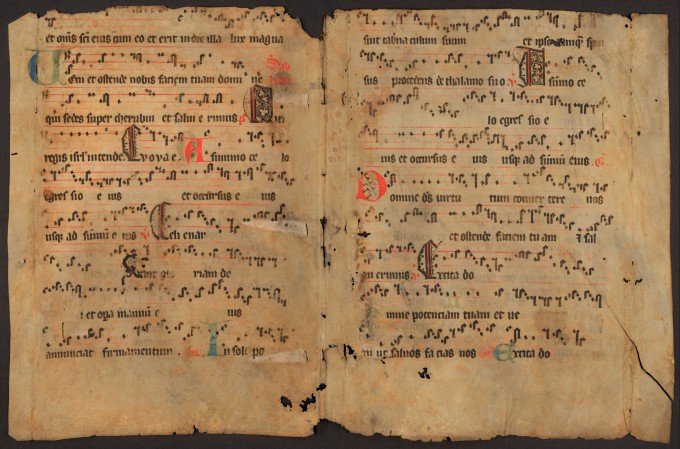 et om̄s sci eius cum eo et erit in die illa lux magna
Veni et ostende nobis faciem tuam domi ne
qui sedes super cherubin et salui erimus
regis isrl intende. Evovae. A summo ce lo
egressio e ius et occursus e ius
usq ad summū e ius Celi enar
rant glo riam de
i et opa manuū e ius
annunciat firmamentum. In sole po
suit tabnaculum suum et ipse tamq̄ spon
sus procedens de thalamo suo A summo ce
lo egressio e
ius et occursus e ius usq ad summū eius.
Domine ds̄ virtu tum conuer tere nos
et ostende faciem tu am i sal
ui erimus. Excita do
mine potenciam tuam et ue
ni ut saluos fa cias nos Excita do